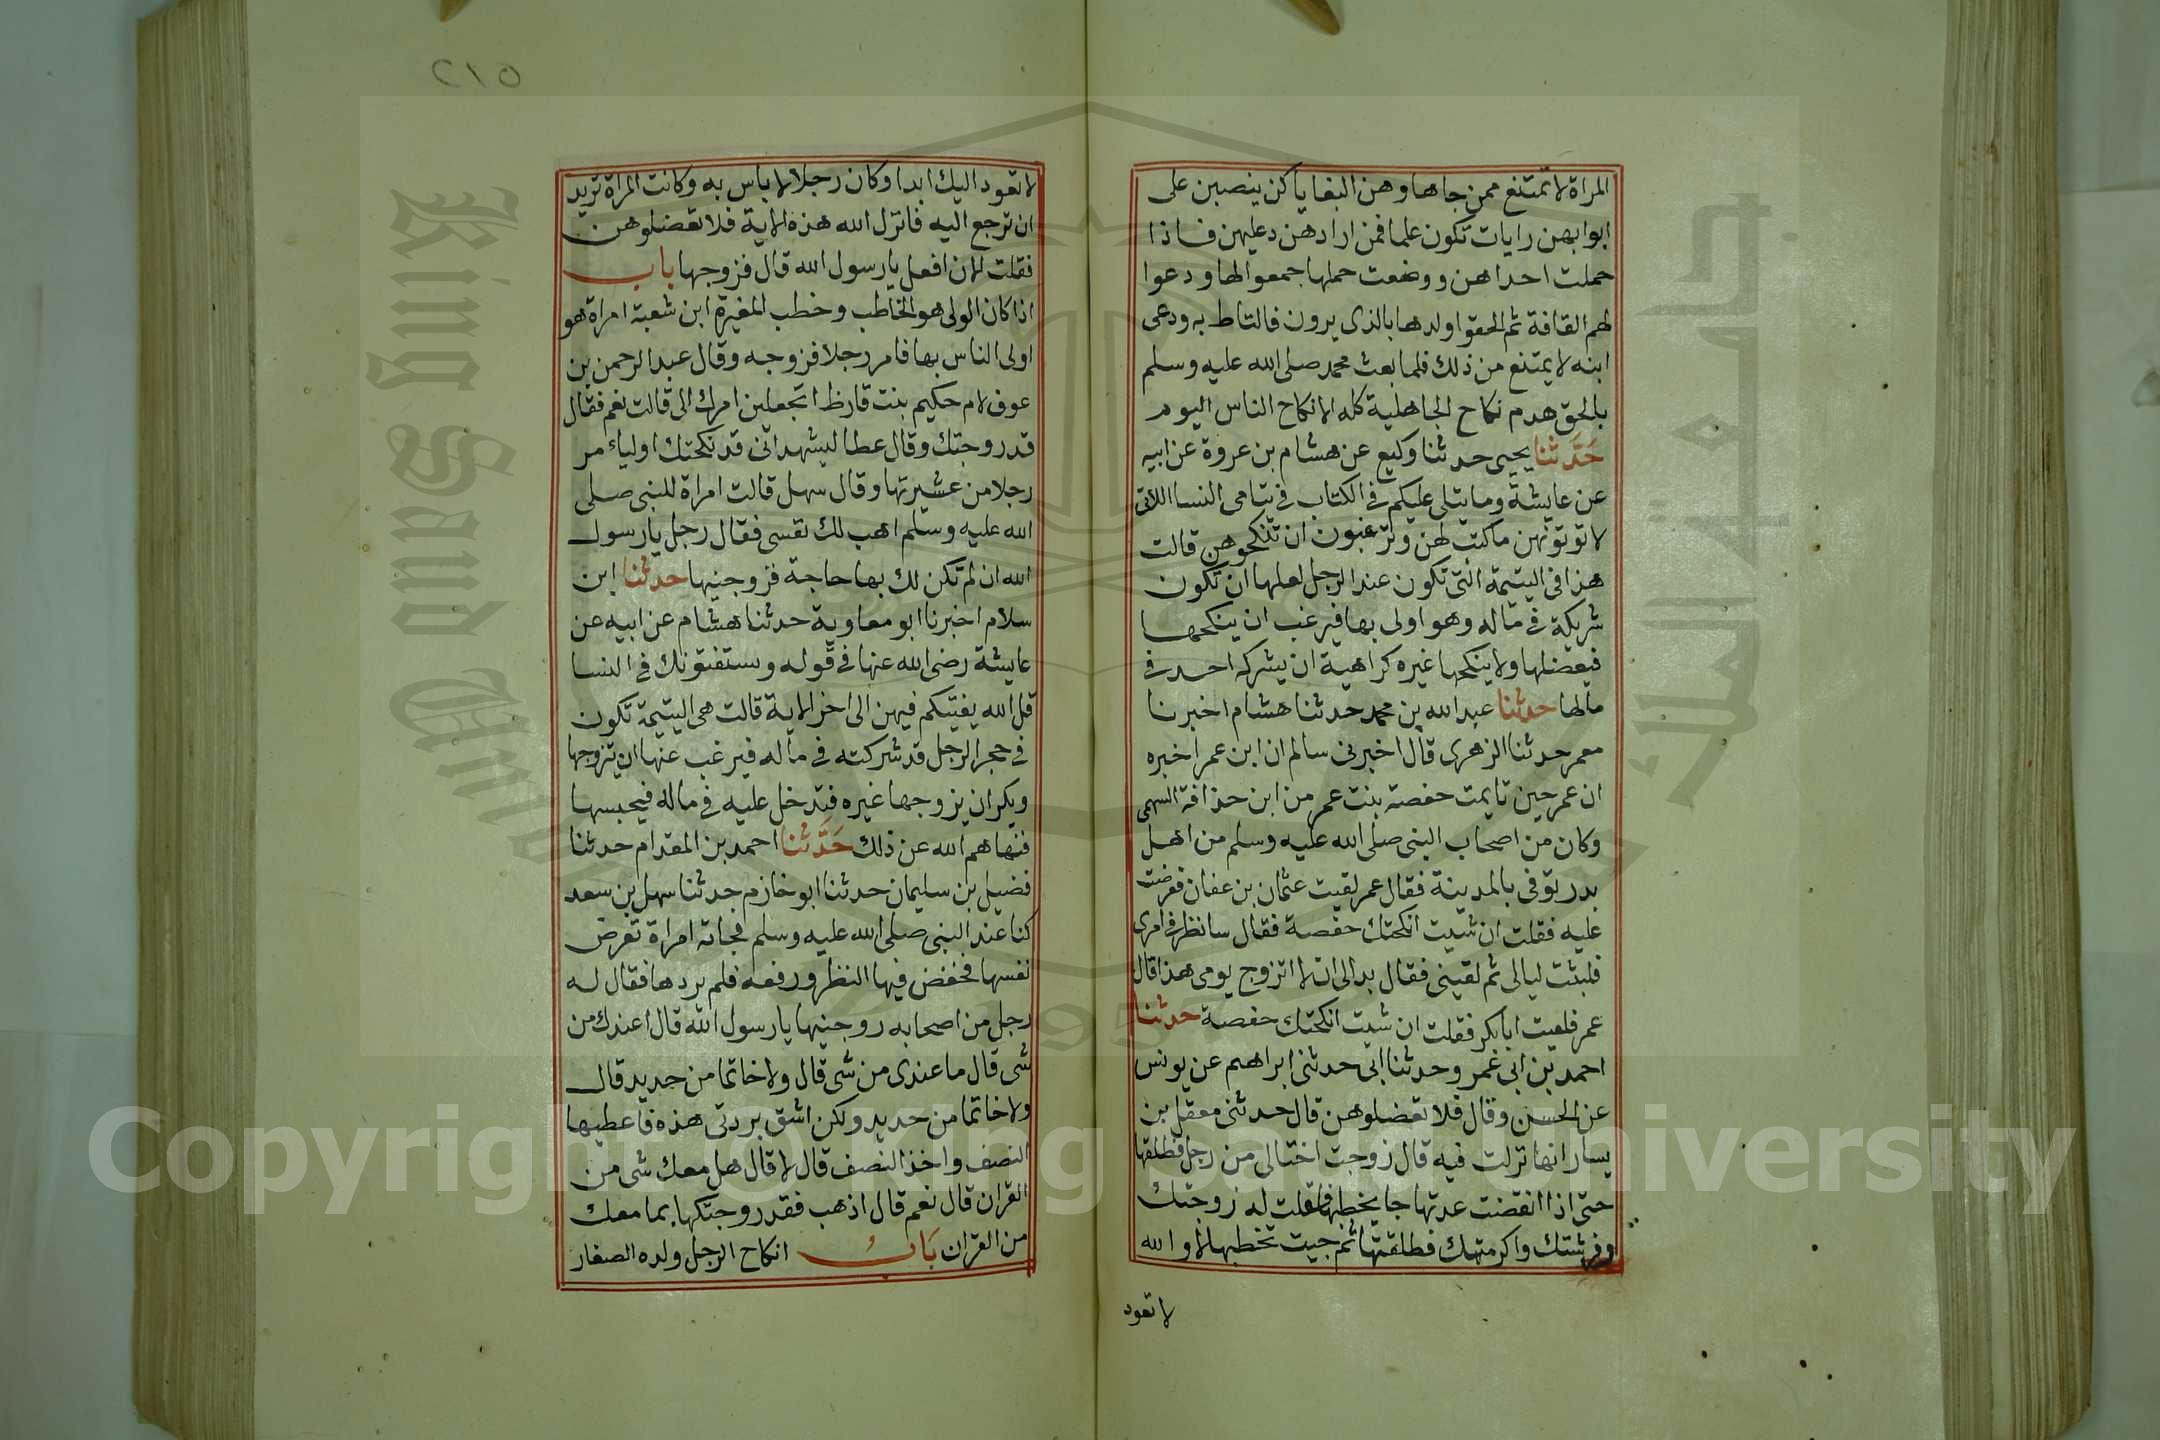 ٢١٥
المراة لا تمتنع ممن جاها وهن البغايا كن ينصبن على
ابوابهن رايات تكون علما فمن ارادهن دعليهن فاذا
حملت احداهن ووضعت حملها جمعوا لها ودعوا
لهم القافة ثم الحقوا ولدها بالذى يرون فالتاط به ودعى
ابنه لا يمتنع من ذلك فلما بعث محمد صلى الله عليه وسلم
بالحق هدم نكاح الجاهلية كله الا نكاح الناس اليوم
حَدَّثنا يحيى حدثنا وكيع عن هشام بن عروة عن ابيه
عن عايشة وما يتلى عليكم فى الكتاب فى يتامى النسا اللاتى
لا توتونهن ما كتب لهن وترغبون ان تنكحوهن قالت
هذا فى اليتيمة التى تكون عند الرجل لعلها ان تكون
شريكة فى ماله وهو اولى بها فيرغب ان ينكحها
فيعضلها ولا ينكحها غيره كراهية ان يشركه احد فى
مالها حدثنا عبد الله بن محمد حدثنا هشام اخبرنا
معمر حدثنا الزهرى قال اخبرنى سالم ان ابن عمر اخبره
ان عمر حين تايمت حفصة بنت عمر من ابن حذافة السهمى
وكان من اصحاب النبى صلى الله عليه وسلم من اهل
بدر توفى بالمدينة فقال عمر لقيت عثمان بن عفان فعرضت
عليه فقلت ان شيت انكحتك حفصة فقال سانظر فى امرى
فلبثت ليالى ثم لقينى فقال بدا لى ان لا اتزوج يومى هذا قال
عمر فلقيت ابا بكر فقلت ان شيت انكحتك حفصة حدثنا
احمد بن ابى عمر وحدثنا ابى حدثنى ابراهيم عن يونس
عن الحسن وقال فلا تعضلوهن قال حدثنى معقل بن
يسار انها نزلت فيه قال زوجت اختا لى من رجل فطلقها
حتى اذا انقضت عدتها جا يخطبها فقلت له زوجتك
وفرشتك واكرمتك فطلقتها ثم جيت تخطبها لا والله
لا تعود
لا تعود اليك ابدا وكان رجلا لا باس به وكانت المراة تريد
ان ترجع اليه فانزل الله هذه الاية فلا تعضلوهن
فقلت الان افعل يا رسول الله قال فزوجها باب
اذا كان الولى هو الخاطب وخطب المغيرة ابن شعبة امراة هو
اولى الناس بها فامر رجلا فزوجه وقال عبد الرحمن بن
عوف لام حكيم بنت قارظ اتجعلين امرك الى قالت نعم فقال
قد زوجتك وقال عطا ليشهد انى قد نكحتك او لياءمر
رجلا من عشيرتها وقال سهل قالت امراة للنبى صلى
الله عليه وسلم اهب لك نفسى فقال رجل يا رسول
الله ان لم تكن لك بها حاجة فزوجنيها حدثنا ابن
سلام اخبرنا ابو معاوية حدثنا هشام عن ابيه عن
عايشة رضى الله عنها فى قوله ويستفتونك فى النسا
قل الله يفتيكم فيهن الى اخر الاية قالت هى اليتيمة تكون
فى حجر الرجل قد شركته فى ماله فيرغب عنها ان يتزوجها
ويكر ان يزوجها غيره فتدخل عليه فى ماله فيحبسها
فنهاهم الله عن ذلك حَدَّثنا احمد بن المقدام حدثنا
فضيل بن سليمان حدثنا ابو خازم حدثنا سهل بن سعد
كنا عند النبى صلى الله عليه وسلم فجاته امراة تعرض
نفسها فخفض فيها النظر ورفعه فلم يردها فقال له
رجل من اصحابه زوجنيها يا رسول الله قال اعندك من
شى قال ما عندى من شى قال ولا خاتما من حديد قال
ولا خاتما من حديد ولكن اشق بردتى هذه فاعطيها
النصف واخذ النصف قال لا قال هل معك شى من
القران قال نعم قال اذهب فقد زوجتكها بما معك
من القران بَابُ انكاح الرجل ولده الصغار
King Saud University
1957
Copyright © King Saud University